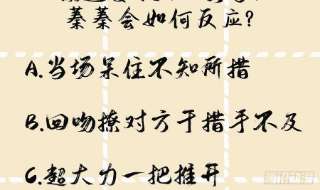 蓁蓁会如何反应?
A.当场呆住不知所措
B.回吻撩对方于措手不及
C.超大力一把推开